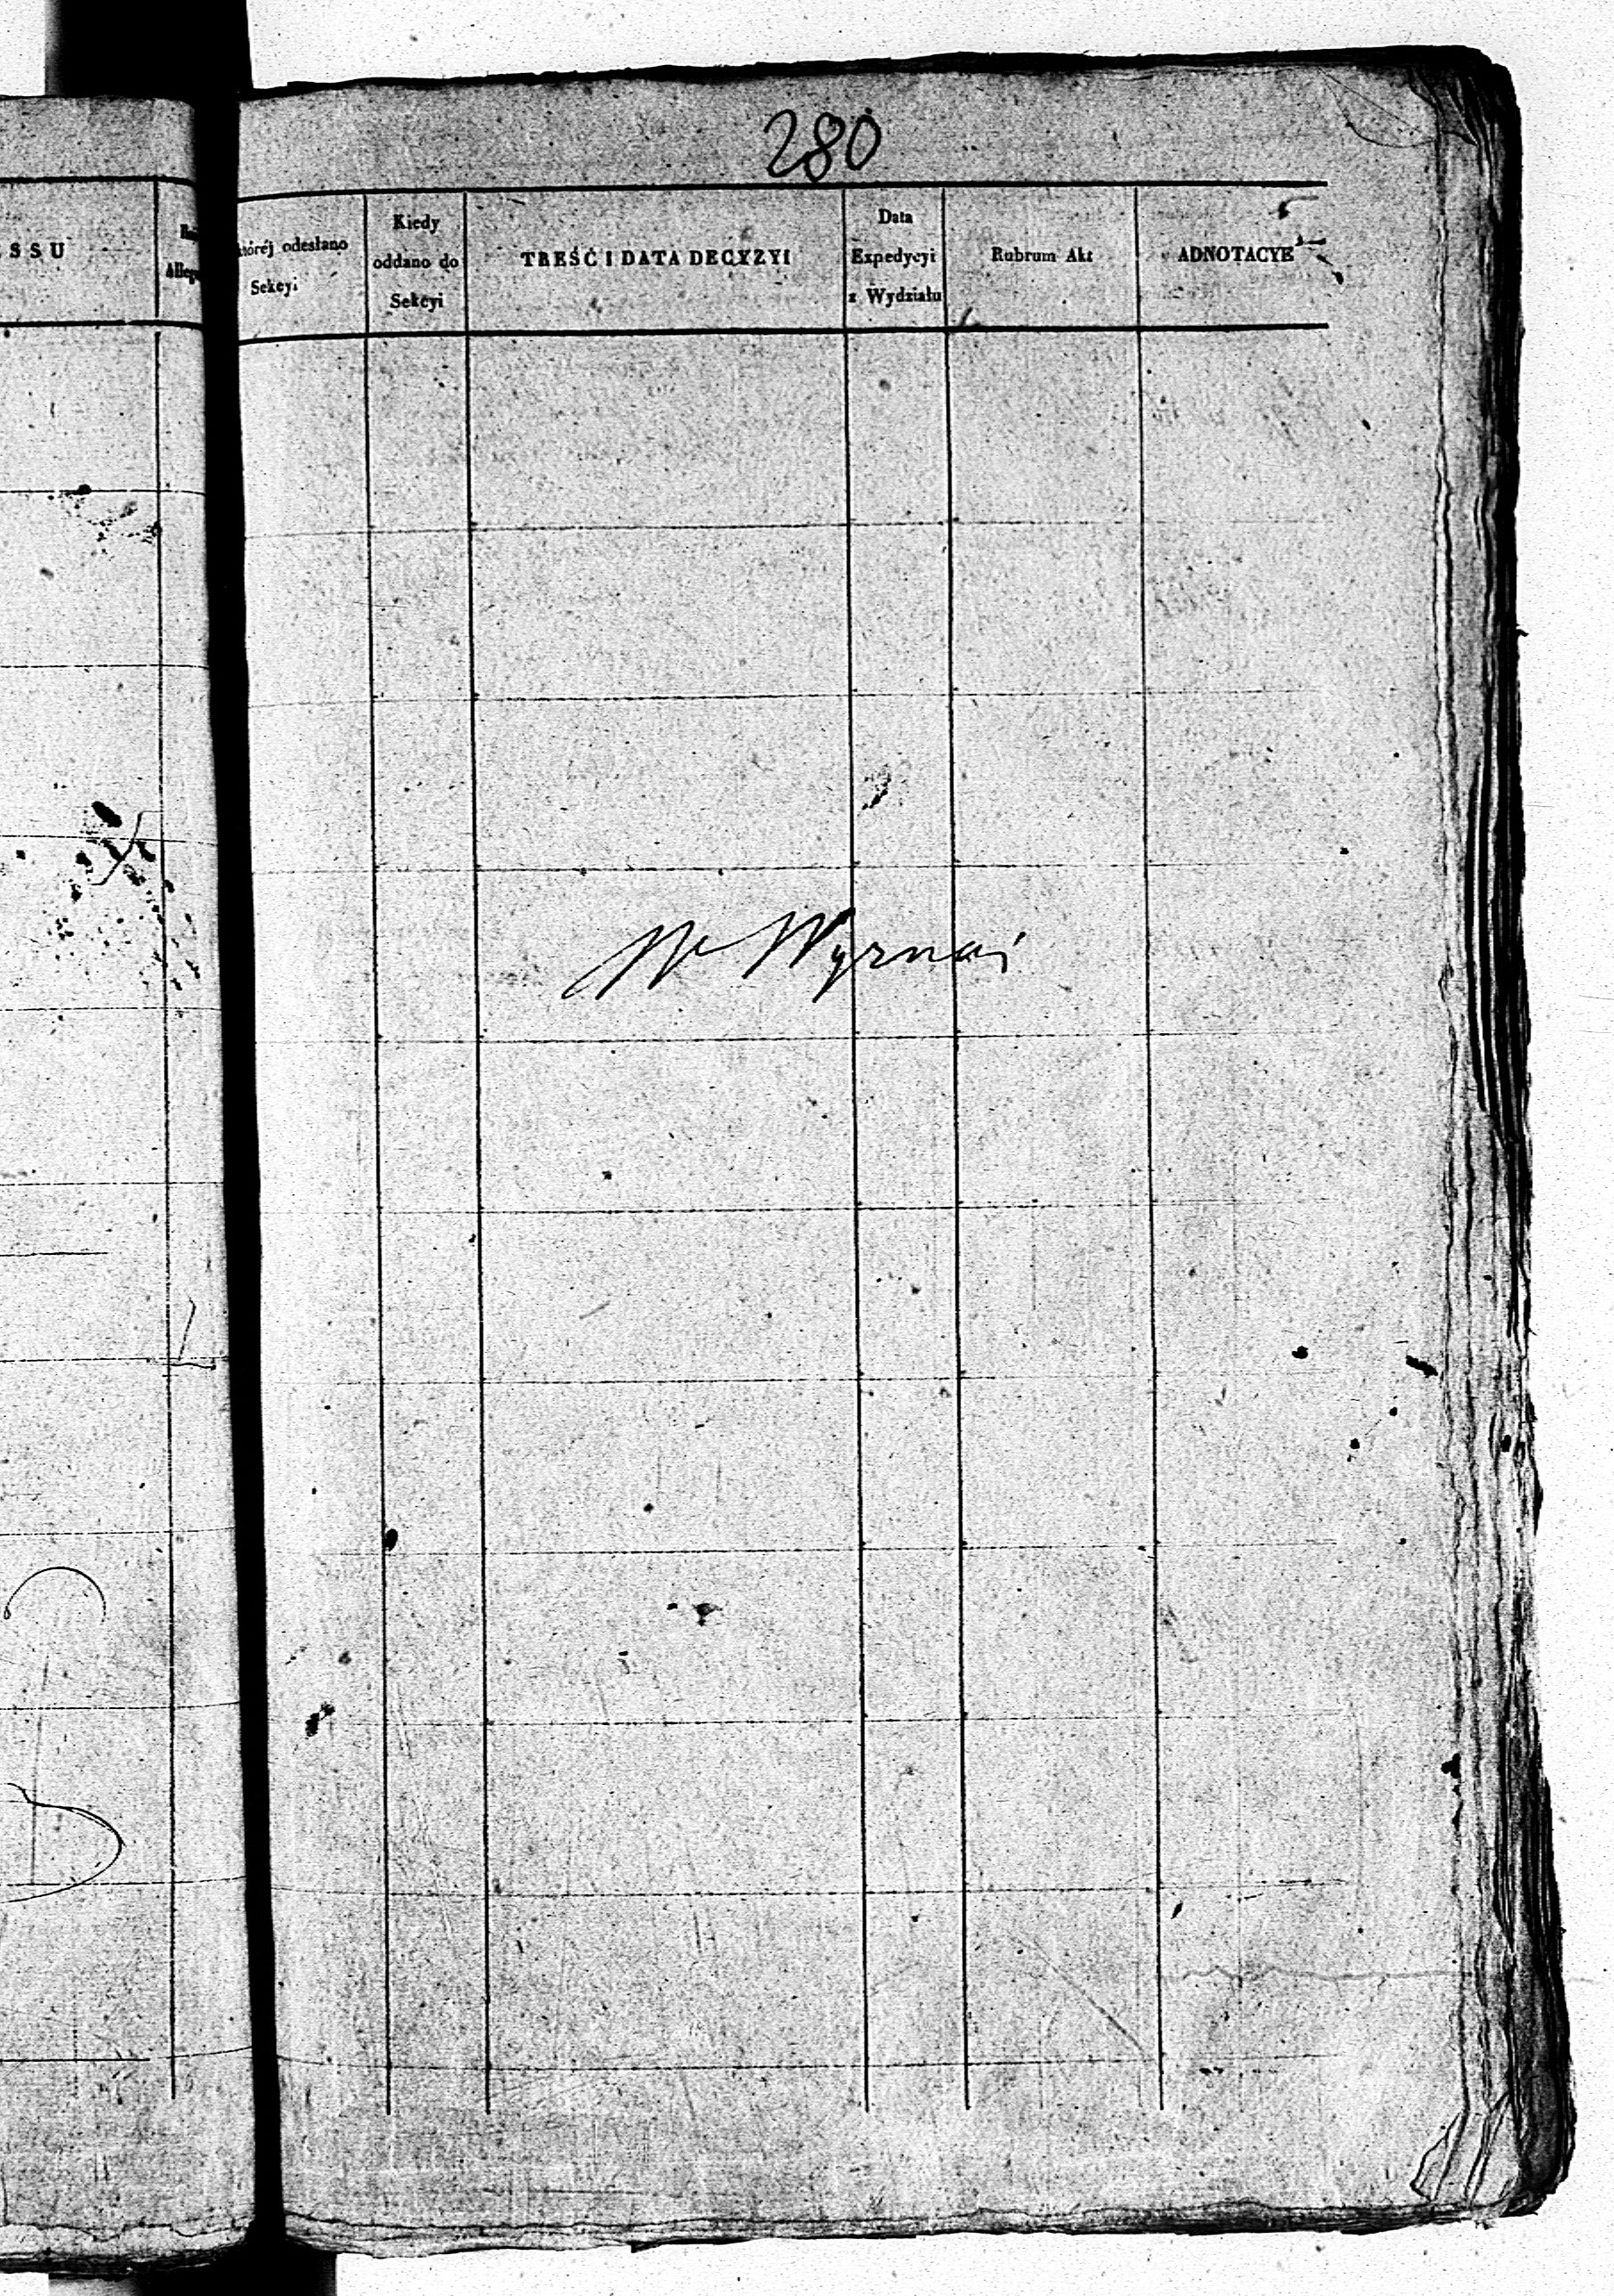 280
SSU
której odesłano
Sekcyi
Kiedy
oddano do
Sekcyi
TREŚĆ I DATA DECYZYI
Data
Expedycyi
z Wydziału
Rubrum Akt
ADNOTACYE